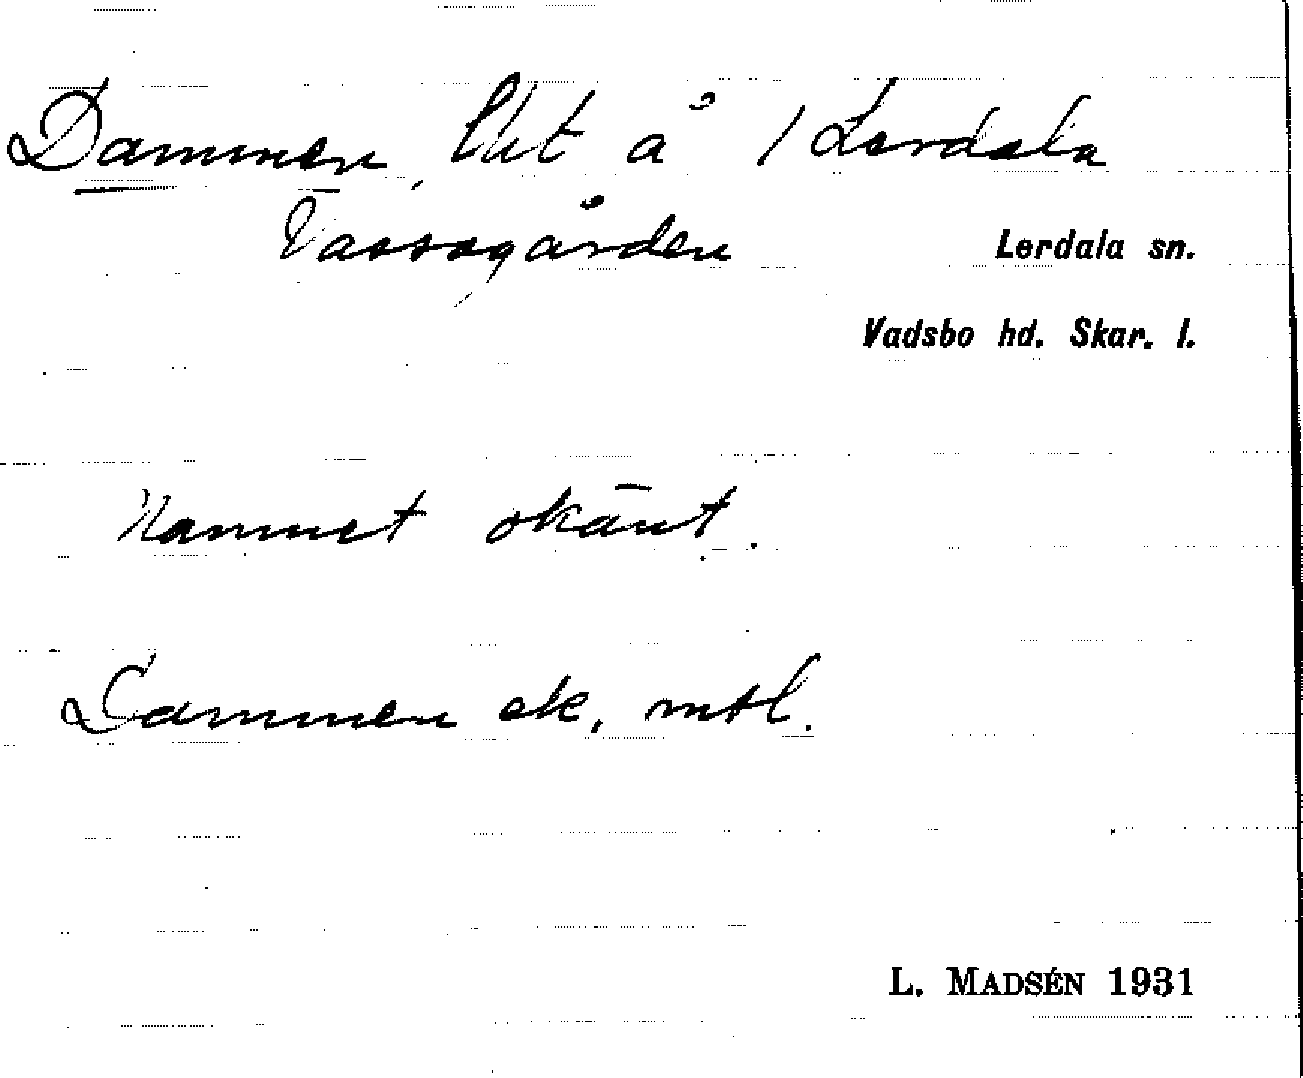 Dammen, lht å 1 Lerdala
Vassagården
Lerdala sn.
Vadsbo hd. Skar. l.
Namnet okänt.
Dammen ek. mtl.
L. MADSÉN 1931